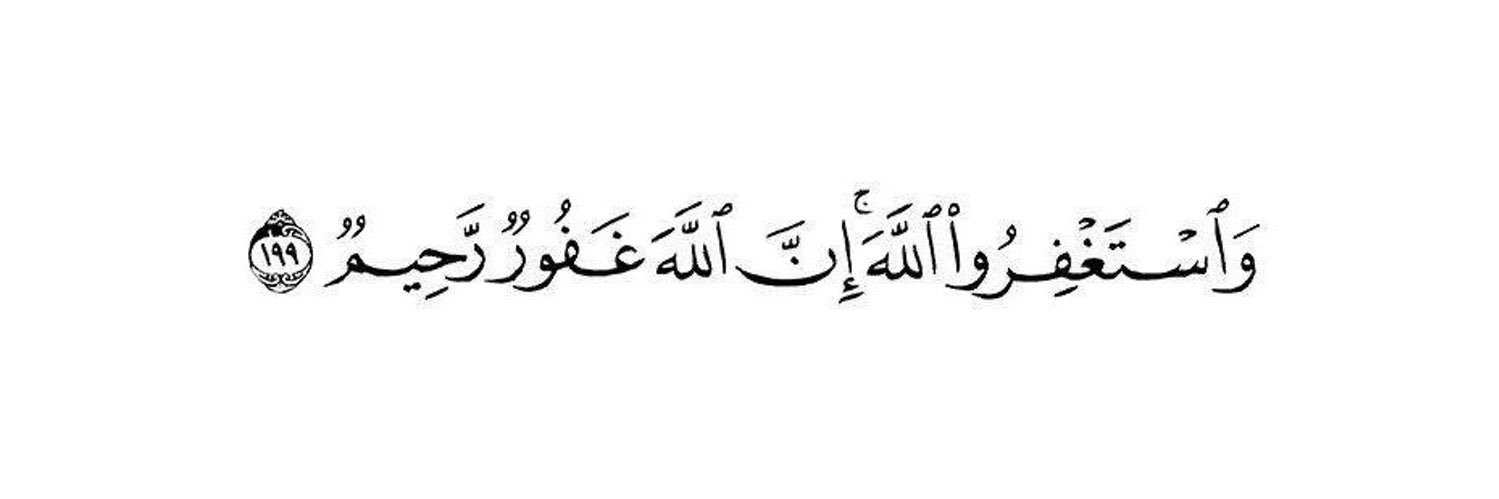 وَٱسْتَغْفِرُوا۟ ٱللَّهَ ۚ إِنَّ ٱللَّهَ غَفُورٌ رَّحِيمٌ ١٩٩